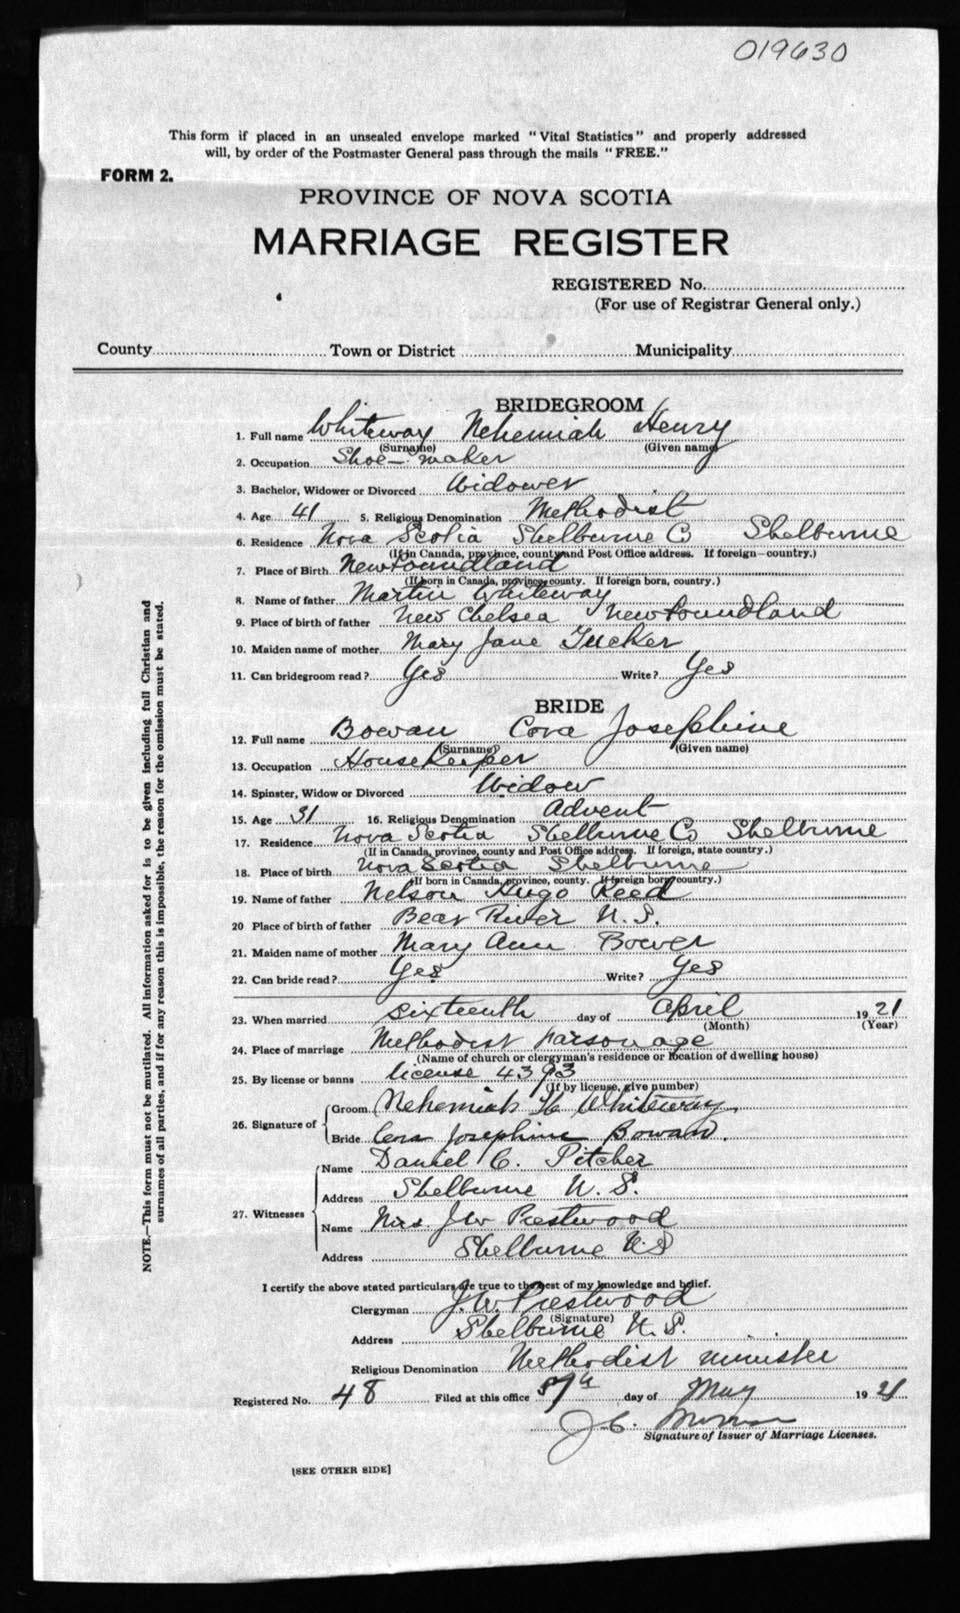 019630
This form if placed in an unsealed envelope marked "Vital Statistics" and properly addressed
will, by order of the Postmaster General pass through the mails "FREE."
FORM 2.
PROVINCE OF NOVA SCOTIA
MARRIAGE REGISTER
REGISTERED No.
(For use of Registrar General only.)
County Town or District Municipality
BRIDEGROOM
1. Full name Whiteway Nehemiah Henry
(Surname) (Given name)
2. Occupation Shoe-maker
3. Bachelor, Widower or Divorced Widower
4. Age 41 5. Religious Denomination Methodist
6. Residence Nova Scotia Shelburne Co Shelburne
(If in Canada, province, county and Post Office address. If foreign—country.)
7. Place of Birth Newfoundland
(If born in Canada, province, county. If foreign born, country.)
8. Name of father Martin Whiteway
9. Place of birth of father New Chelsea Newfoundland
10. Maiden name of mother Mary Jane Tucker
11. Can bridegroom read? Yes Write? Yes
BRIDE
12. Full name Bowan Cora Josephine
(Surname) (Given name)
13. Occupation Housekeeper
14. Spinster, Widow or Divorced Widow
15. Age 31 16. Religious Denomination Advent
17. Residence Nova Scotia Shelburne Co Shelburne
(If in Canada, province, county and Post Office address. If foreign, state country.)
18. Place of birth Nova Scotia Shelburne
(If born in Canada, province, county. If foreign born, country.)
19. Name of father Nelson Hugo Reed
20 Place of birth of father Bear River N. S.
21. Maiden name of mother Mary Ann Bower
22. Can bride read? Yes Write? Yes
23. When married sixteenth day of April 1921
(Month) (Year)
24. Place of marriage Methodist Parsonage
(Name of church or clergyman's residence or location of dwelling house)
25. By license or banns license 4393
(If by license, give number)
26. Signature of Groom Nehemiah H Whiteway.
Bride Cora Josephine Bowan.
27. Witnesses
Name Daniel C. Pitcher
Address Shelburne N. S.
Name Mrs. J W Prestwood
Address Shelburne N S
I certify the above stated particulars are true to the best of my knowledge and belief.
Clergyman J. W. Prestwood
(Signature)
Address Shelburne N. S.
Religious Denomination Methodist minister
Registered No. 48 Filed at this office day of May 1921
J C.
Signature of Issuer of Marriage Licenses.
[SEE OTHER SIDE]
NOTE.—This form must not be mutilated. All information asked for is to be given including full Christian and
surnames of all parties, and if for any reason this is impossible, the reason for the omission must be stated.